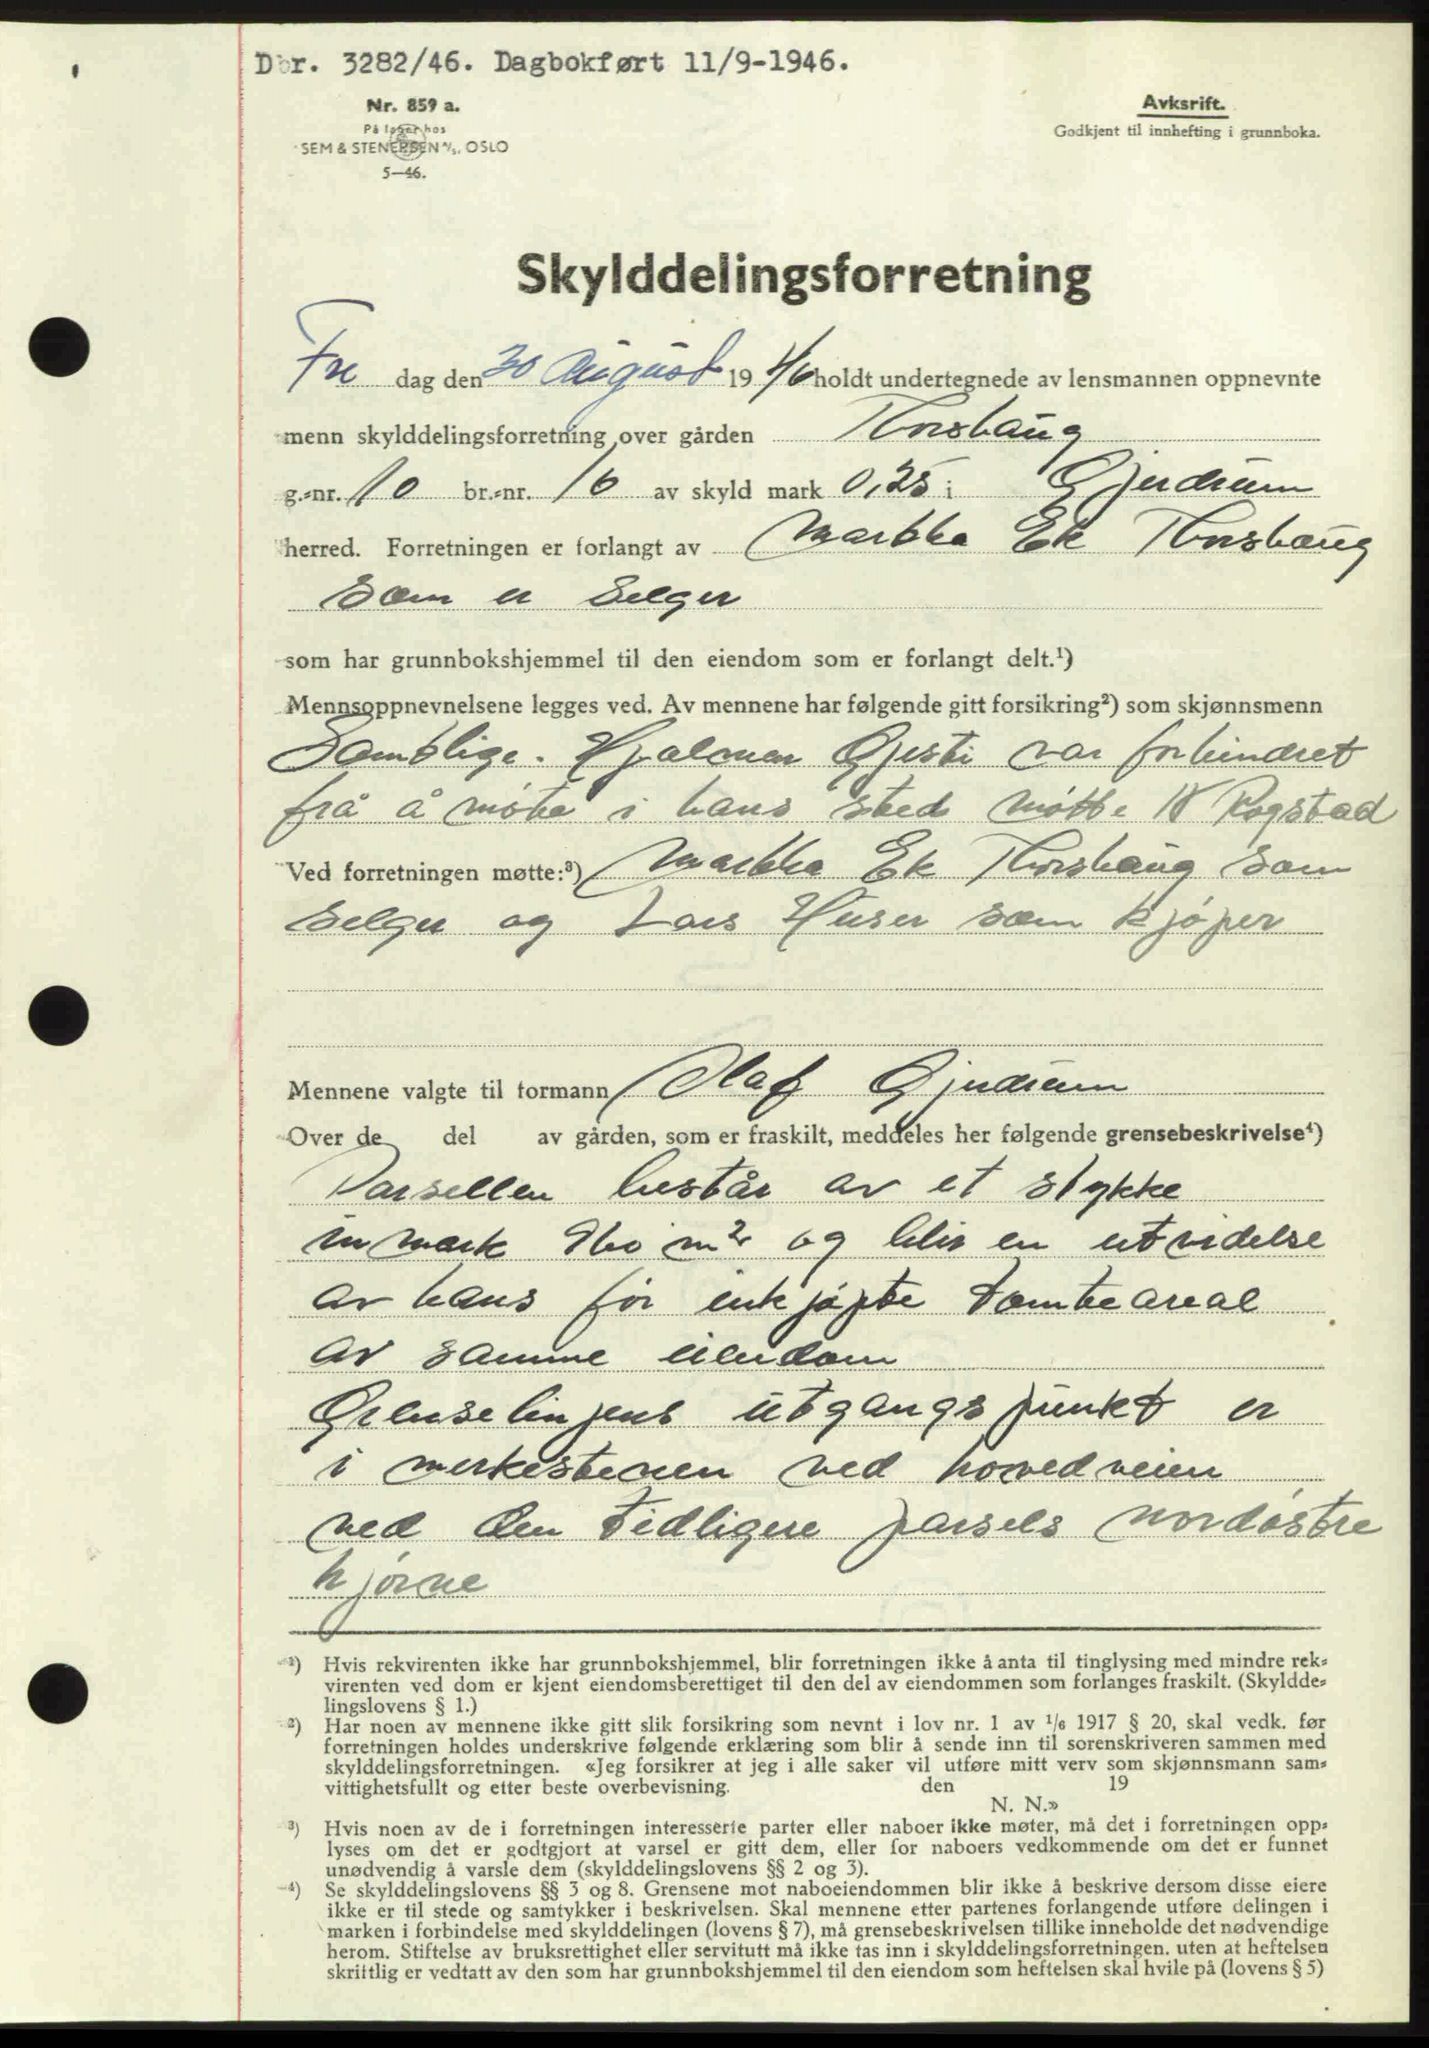 Dbr. 3282/46. Dagbokført 11/9-1946.
Nr. 859 a.
På lager hos
SEM & STENERSEN A/S, OSLO
5—46.
Avksrift.
Godkjent til innhefting i grunnboka.
Skylddelingsforretning
Fre dag den 30 August 1946 holdt undertegnede av lensmannen oppnevnte
menn skylddelingsforretning over gården Thorshaug
g.=nr. 10 br.=nr. 16 av skyld mark 0,25 i Gjerdrum
herred. Forretningen er forlangt av Martha Ek Thorshaug
som er selger
som har grunnbokshjemmel til den eiendom som er forlangt delt.¹)
Mennsoppnevnelsene legges ved. Av mennene har følgende gitt forsikring²) som skjønnsmenn
Samtlige. Hjalmar Gjesti var forhindret
frå å møte i hans sted møtte Rogstad
Ved forretningen møtte:³) Martha Ek Thorshaug som
selger og Lars Huser som kjøper
Mennene valgte til formann Olaf Gjerdrum
Over de del av gården, som er fraskilt, meddeles her følgende grensebeskrivelse⁴)
Parsellen består av et stykke
inmark 960 m² og blir en utvidelse
av hans før inkjøpte tomteareal
av samme eiendom
Grenselinjens utgangspunkt er
i merkestenen ved hovedveien
ved den tidligere parsels nordøstre
hjørne
¹) Hvis rekvirenten ikke har grunnbokshjemmel, blir forretningen ikke å anta til tinglysing med mindre rek=
virenten ved dom er kjent eiendomsberettiget til den del av eiendommen som forlanges fraskilt. (Skyldde=
lingslovens § 1.)
²) Har noen av mennene ikke gitt slik forsikring som nevnt i lov nr. 1 av 1/6 1917 § 20, skal vedk. før
forretningen holdes underskrive følgende erklæring som blir å sende inn til sorenskriveren sammen med
skylddelingsforretningen. «Jeg forsikrer at jeg i alle saker vil utføre mitt verv som skjønnsmann sam=
vittighetsfullt og etter beste overbevisning. den 19
N. N.»
³) Hvis noen av de i forretningen interesserte parter eller naboer ikke møter, må det i forretningen opp=
lyses om det er godtgjort at varsel er gitt dem, eller for naboers vedkommende om det er funnet
unødvendig å varsle dem (skylddelingslovens §§ 2 og 3).
⁴) Se skylddelingslovens §§ 3 og 8. Grensene mot naboeiendommen blir ikke å beskrive dersom disse eiere
ikke er til stede og samtykker i beskrivelsen. Skal mennene etter partenes forlangende utføre delingen i
marken i forbindelse med skylddelingen (lovens § 7), må grensebeskrivelsen tillike inneholde det nødvendige
herom. Stiftelse av bruksrettighet eller servitutt må ikke tas inn i skylddelingsforretningen. uten at heftelsen
skriftlig er vedtatt av den som har grunnbokshjemmel til den eiendom som heftelsen skal hvile på (lovens § 5)